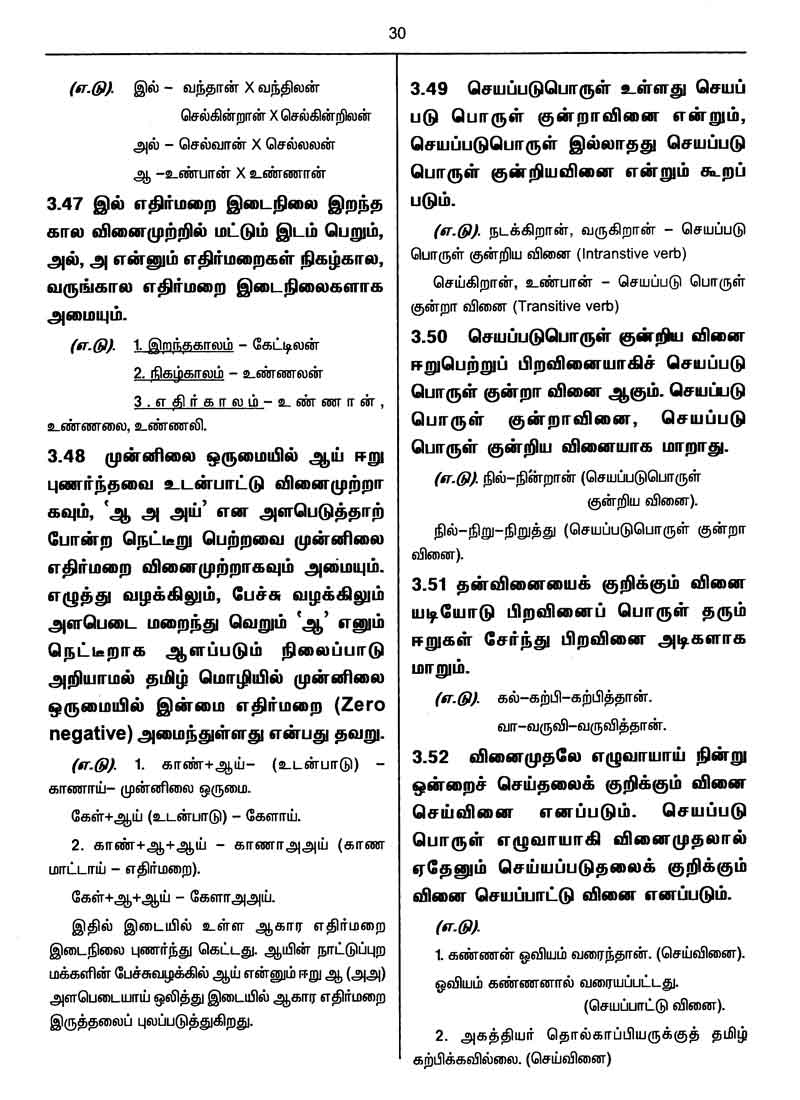 30
(எ.டு). இல் – வந்தான் X வந்திலன்
செல்கின்றான் X செல்கின்றிலன்
அல் – செல்வான் X செல்லலன்
ஆ –உண்பான் X உண்ணான்
3.47 இல் எதிர்மறை இடைநிலை இறந்த
கால வினைமுற்றில் மட்டும் இடம் பெறும்,
அல், அ என்னும் எதிர்மறைகள் நிகழ்கால,
வருங்கால எதிர்மறை இடைநிலைகளாக
அமையும்.
(எ.டு). 1. இறந்தகாலம் – கேட்டிலன்
2. நிகழ்காலம் – உண்ணலன்
3 . எ தி ர் கா ல ம் – உ ண் ணா ன் ,
உண்ணலை, உண்ணலி.
3.48 முன்னிலை ஒருமையில் ஆய் ஈறு
புணர்ந்தவை உடன்பாட்டு வினைமுற்றா
கவும், ‘ஆ அ அய்’ என அளபெடுத்தாற்
போன்ற நெட்டீறு பெற்றவை முன்னிலை
எதிர்மறை வினைமுற்றாகவும் அமையும்.
எழுத்து வழக்கிலும், பேச்சு வழக்கிலும்
அளபெடை மறைந்து வெறும் ‘ஆ’ எனும்
நெட்டீறாக ஆளப்படும் நிலைப்பாடு
அறியாமல் தமிழ் மொழியில் முன்னிலை
ஒருமையில் இன்மை எதிர்மறை (Zero
negative) அமைந்துள்ளது என்பது தவறு.
(எ.டு). 1. காண்+ஆய்– (உடன்பாடு) –
காணாய்– முன்னிலை ஒருமை.
கேள்+ஆய் (உடன்பாடு) – கேளாய்.
2. காண்+ஆ+ஆய் – காணாஅஅய் (காண
மாட்டாய் – எதிர்மறை).
கேள்+ஆ+ஆய் – கேளாஅஅய்.
இதில் இடையில் உள்ள ஆகார எதிர்மறை
இடைநிலை புணர்ந்து கெட்டது. ஆயின் நாட்டுப்புற
மக்களின் பேச்சுவழக்கில் ஆய் என்னும் ஈறு ஆ (அஅ)
அளபெடையாய் ஒலித்து இடையில் ஆகார எதிர்மறை
இருத்தலைப் புலப்படுத்துகிறது.
3.49 செயப்படுபொருள் உள்ளது செயப்
படு பொருள் குன்றாவினை என்றும்,
செயப்படுபொருள் இல்லாதது செயப்படு
பொருள் குன்றியவினை என்றும் கூறப்
படும்.
(எ.டு). நடக்கிறான், வருகிறான் – செயப்படு
பொருள் குன்றிய வினை (Intranstive verb)
செய்கிறான், உண்பான் – செயப்படு பொருள்
குன்றா வினை (Transitive verb)
3.50 செயப்படுபொருள் குன்றிய வினை
ஈறுபெற்றுப் பிறவினையாகிச் செயப்படு
பொருள் குன்றா வினை ஆகும். செயப்படு
பொருள் குன்றாவினை, செயப்படு
பொருள் குன்றிய வினையாக மாறாது.
(எ.டு). நில்–நின்றான் (செயப்படுபொருள்
குன்றிய வினை).
நில்–நிறு–நிறுத்து (செயப்படுபொருள் குன்றா
வினை).
3.51 தன்வினையைக் குறிக்கும் வினை
யடியோடு பிறவினைப் பொருள் தரும்
ஈறுகள் சேர்ந்து பிறவினை அடிகளாக
மாறும்.
(எ.டு). கல்–கற்பி–கற்பித்தான்.
வா–வருவி–வருவித்தான்.
3.52 வினைமுதலே எழுவாயாய் நின்று
ஒன்றைச் செய்தலைக் குறிக்கும் வினை
செய்வினை எனப்படும். செயப்படு
பொருள் எழுவாயாகி வினைமுதலால்
ஏதேனும் செய்யப்படுதலைக் குறிக்கும்
வினை செயப்பாட்டு வினை எனப்படும்.
(எ.டு).
1. கண்ணன் ஓவியம் வரைந்தான். (செய்வினை).
ஓவியம் கண்ணனால் வரையப்பட்டது.
(செயப்பாட்டு வினை).
2. அகத்தியர் தொல்காப்பியருக்குத் தமிழ்
கற்பிக்கவில்லை. (செய்வினை)